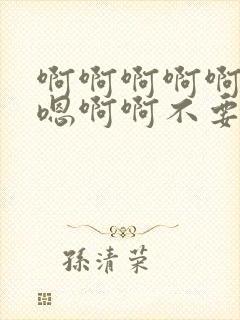 啊啊啊啊啊
嗯啊啊不要
孫清荣